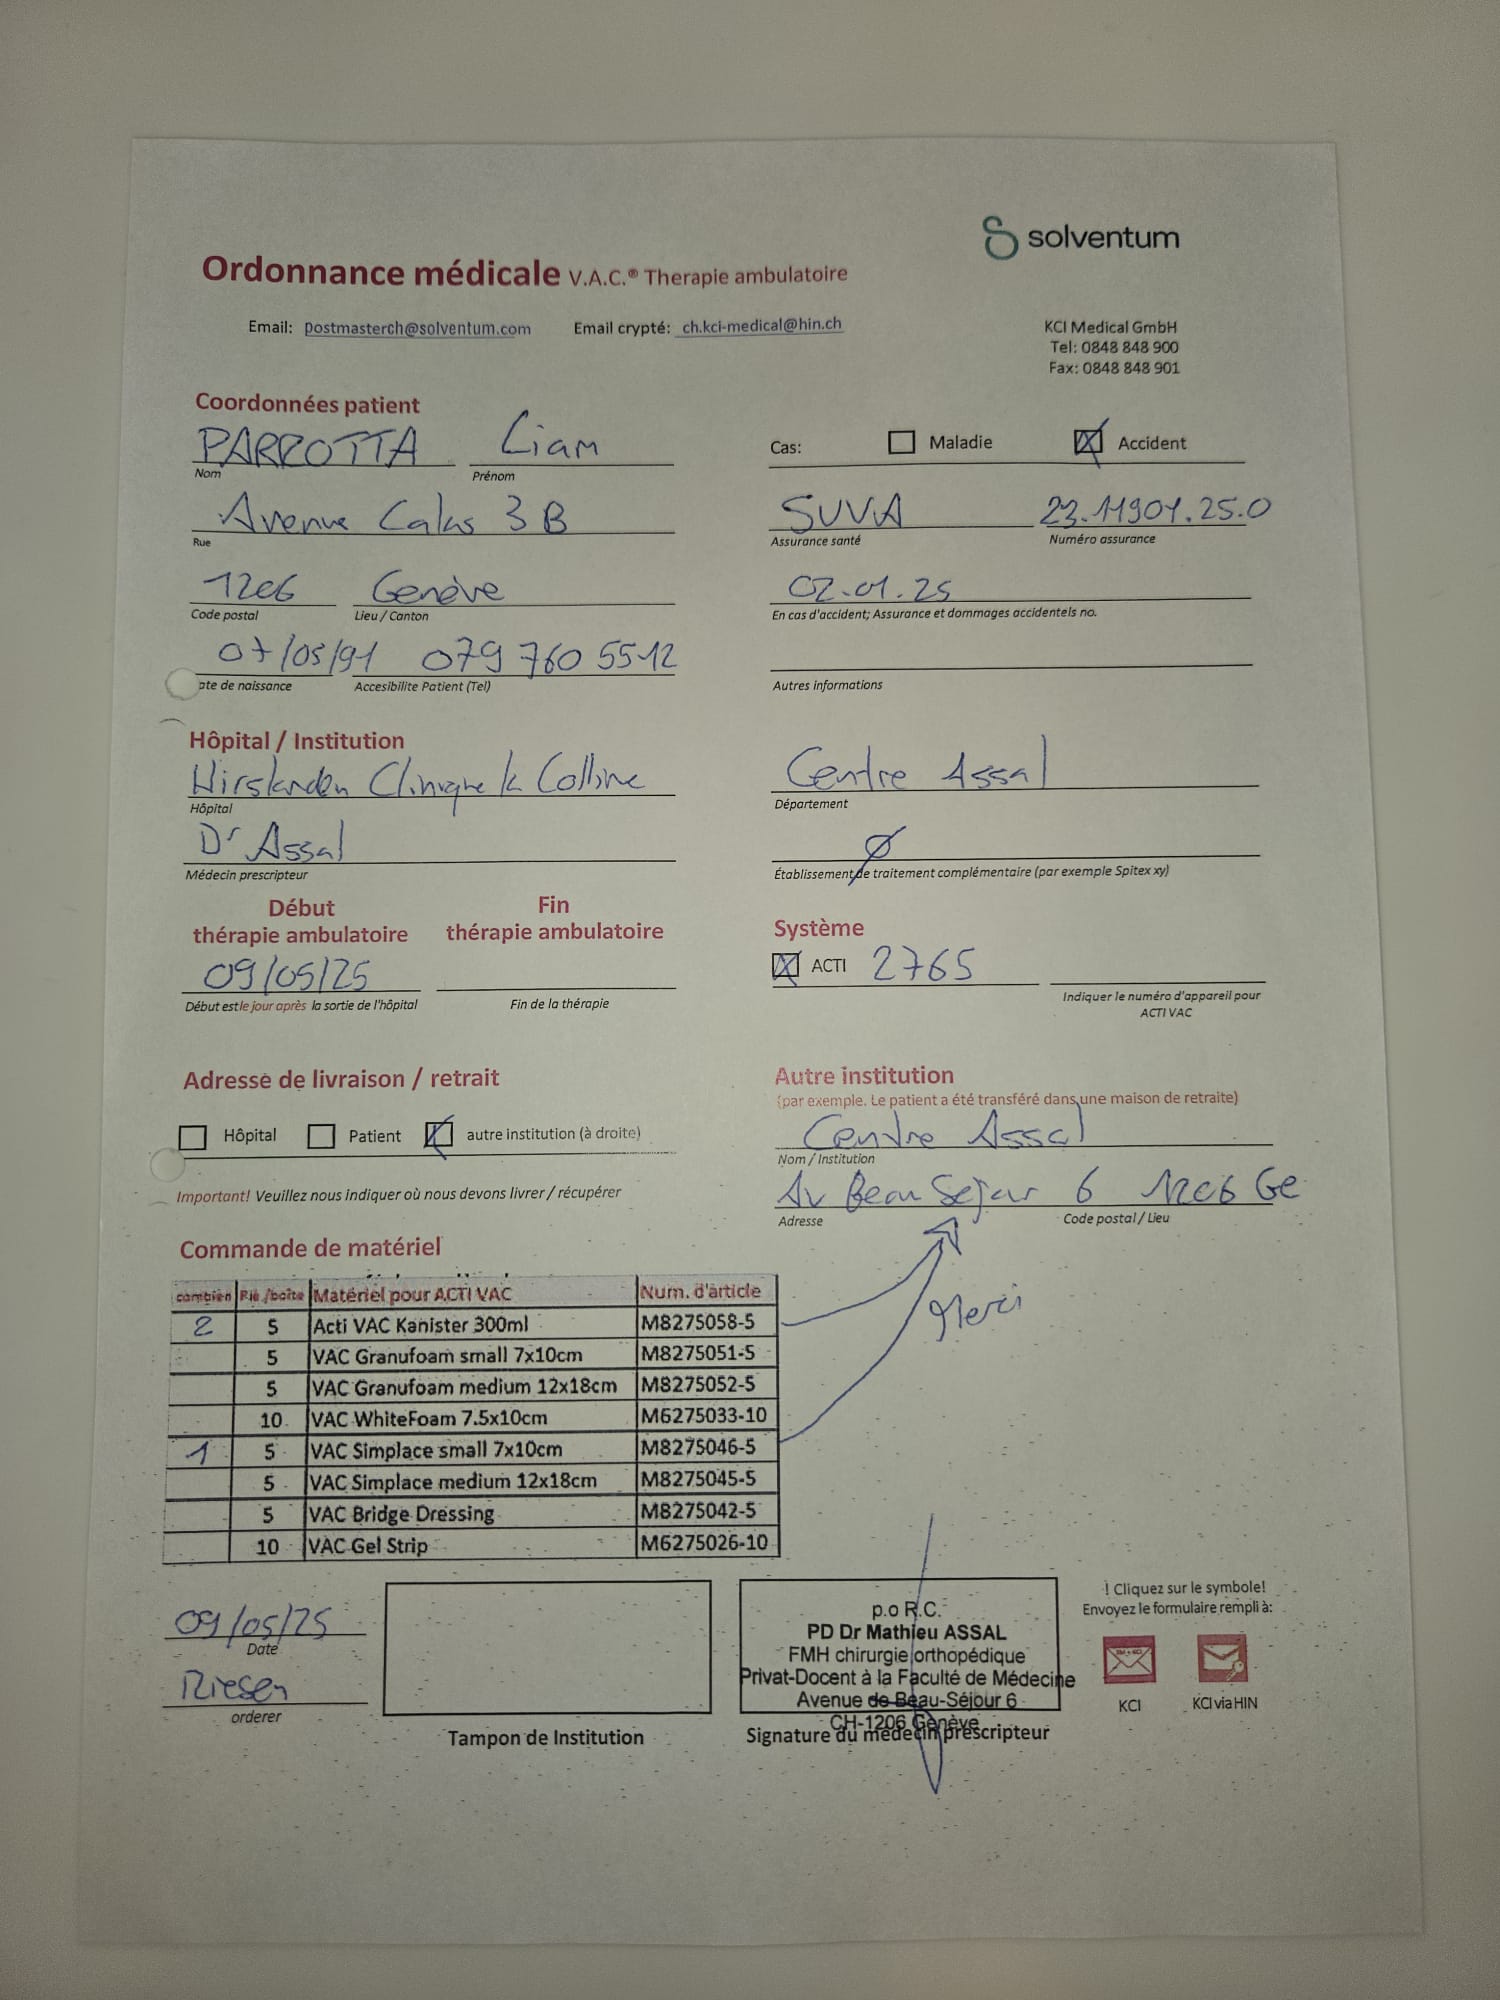 solventum
Ordonnance médicale V.A.C.® Therapie ambulatoire
Email: postmasterch@solventum.com Email crypté: ch.kci-medical@hin.ch
KCI Medical GmbH
Tel: 0848 848 900
Fax: 0848 848 901
Coordonnées patient
PARROTTA Liam
Nom Prénom
Cas: Maladie Accident
Avenue Calas 3B
Rue
SUVA 23.11901.25.0
Assurance santé Numéro assurance
1206 Genève
Code postal Lieu / Canton
02.01.25
En cas d'accident; Assurance et dommages accidentels no.
07/05/91 079 760 55 12
ate de naissance Accesibilite Patient (Tel)
Autres informations
Hôpital / Institution
Hirslanden Clinique la Colline
Hôpital
Centre Assal
Département
Dr Assal
Médecin prescripteur
Ø
Établissement de traitement complémentaire (par exemple Spitex xy)
Début
thérapie ambulatoire
Fin
thérapie ambulatoire
Système
09/05/25
Début est le jour après la sortie de l'hôpital
Fin de la thérapie
ACTI 2765
Indiquer le numéro d'appareil pour
ACTI VAC
Adresse de livraison / retrait
Hôpital Patient autre institution (à droite)
Important! Veuillez nous indiquer où nous devons livrer / récupérer
Autre institution
(par exemple. Le patient a été transféré dans une maison de retraite)
Centre Assal
Nom / Institution
Av Beau Sejour 6 1206 Ge
Adresse Code postal / Lieu
Merci
Commande de matériel
combien Piè./boîte Matériel pour ACTI VAC Num. d'article
2 5 Acti VAC Kanister 300ml M8275058-5
5 VAC Granufoam small 7x10cm M8275051-5
5 VAC Granufoam medium 12x18cm M8275052-5
10 VAC WhiteFoam 7.5x10cm M6275033-10
1 5 VAC Simplace small 7x10cm M8275046-5
5 VAC Simplace medium 12x18cm M8275045-5
5 VAC Bridge Dressing M8275042-5
10 VAC Gel Strip M6275026-10
09/05/25
Date
Riesen
orderer
Tampon de Institution
p.o R.C.
PD Dr Mathieu ASSAL
FMH chirurgie orthopédique
Privat-Docent à la Faculté de Médecine
Avenue de Beau-Séjour 6
CH-1206 Genève
Signature du médecin prescripteur
! Cliquez sur le symbole!
Envoyez le formulaire rempli à:
KCI KCI via HIN